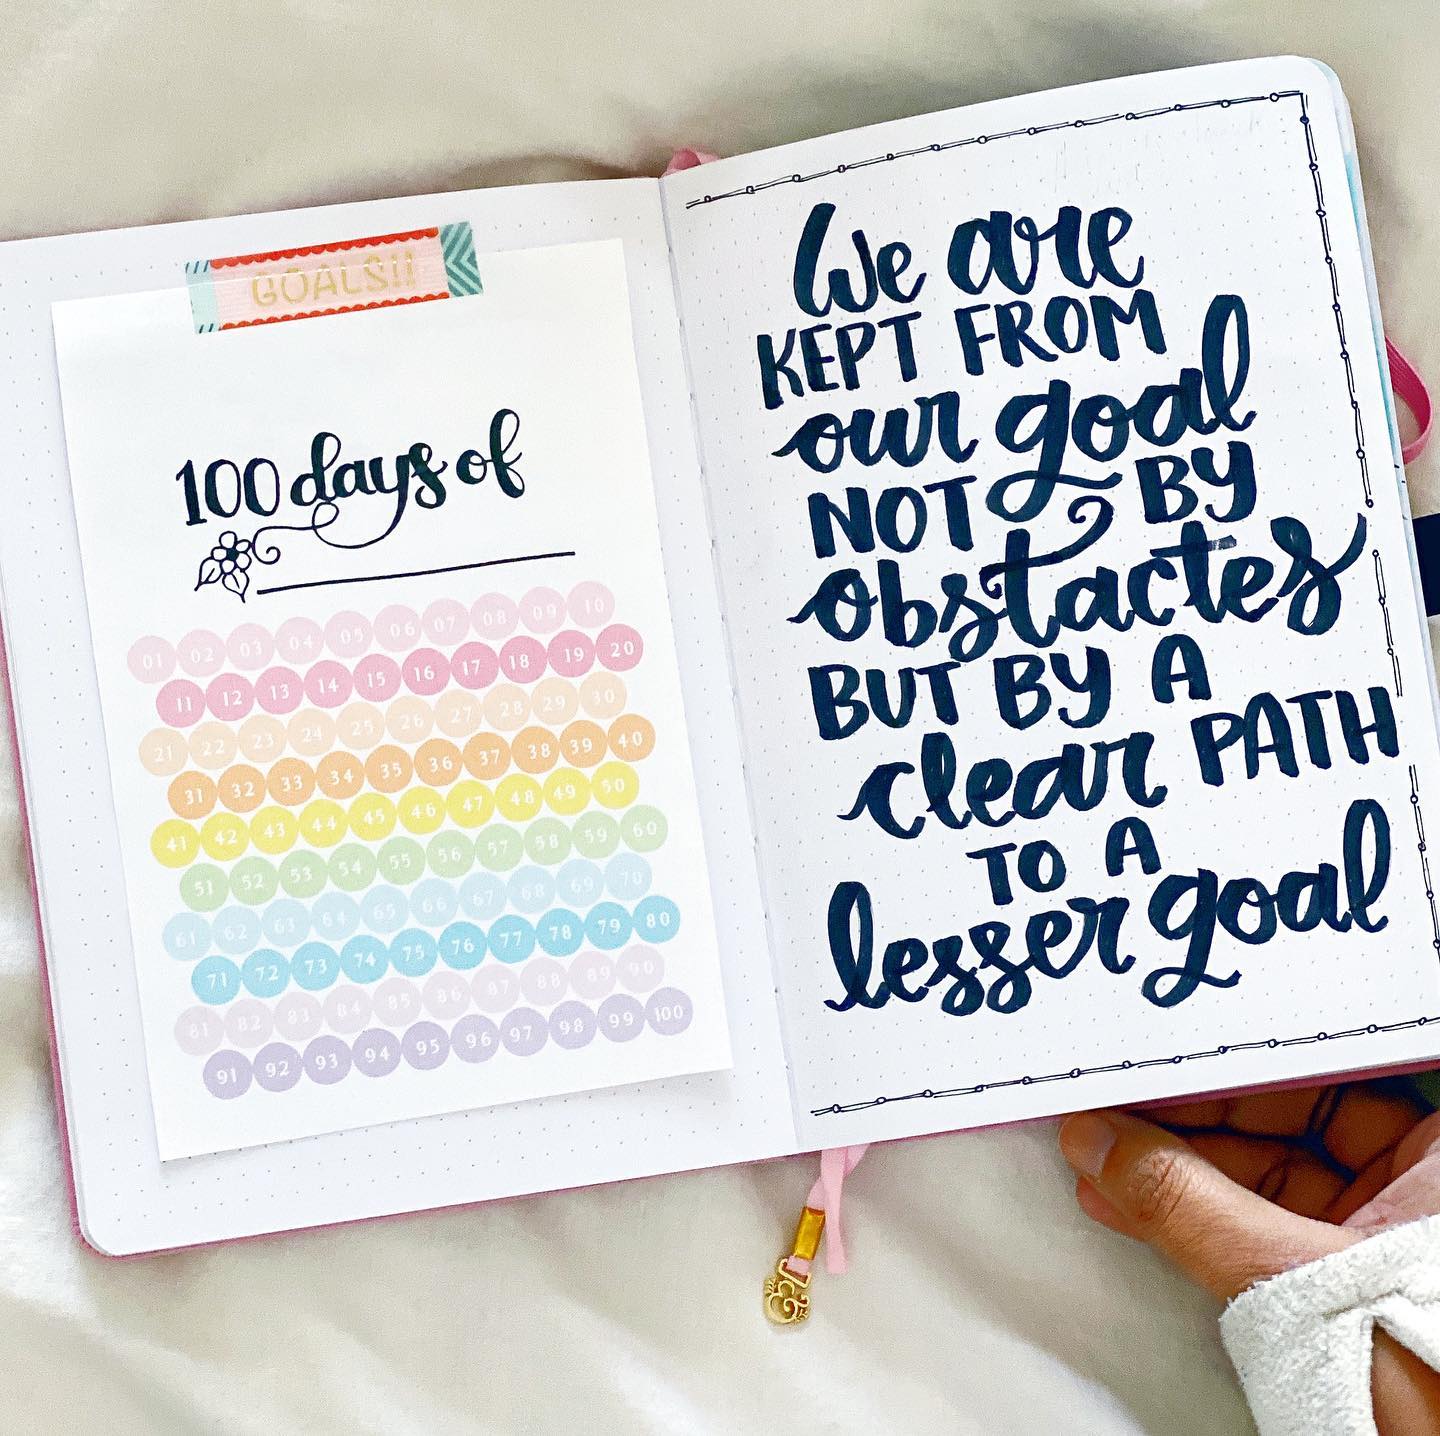 GOALS!!
100 days of
01 02 03 04 05 06 07 08 09 10
11 12 13 14 15 16 17 18 19 20
21 22 23 24 25 26 27 28 29 30
31 32 33 34 35 36 37 38 39 40
41 42 43 44 45 46 47 48 49 50
51 52 53 54 55 56 57 58 59 60
61 62 63 64 65 66 67 68 69 70
71 72 73 74 75 76 77 78 79 80
81 82 83 84 85 86 87 88 89 90
91 92 93 94 95 96 97 98 99 100
We are
KEPT FROM
our goal
NOT BY
obstactes
BUT BY A
clear PATH
TO A
lesser goal